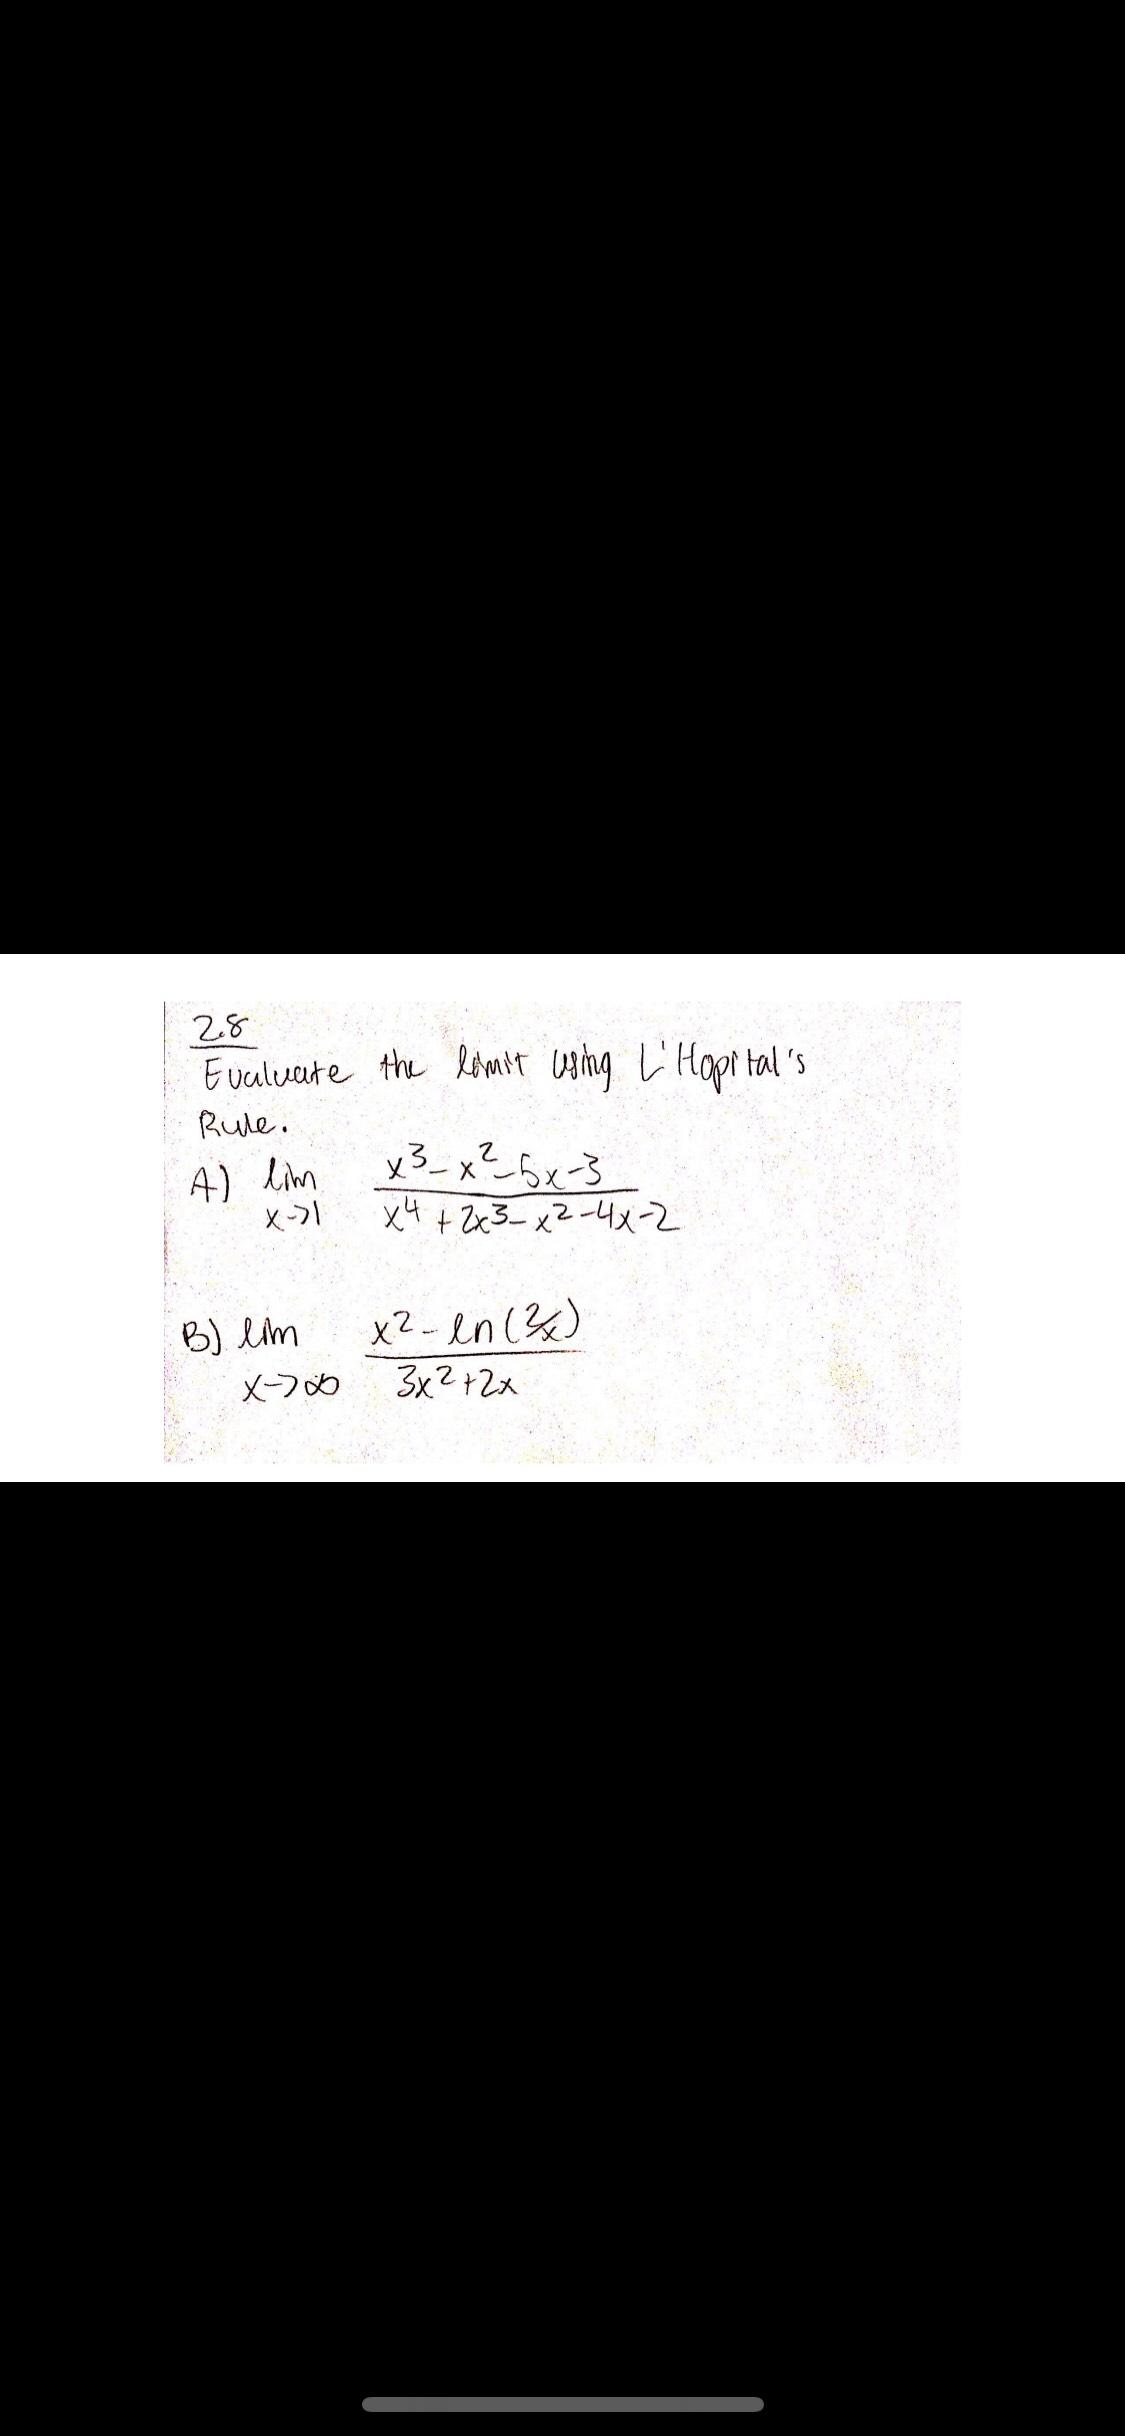 2.8
Evaluate the limit using L'Hopital's
Rule.
A) lim x→1 (x³-x²-5x-3)/(x⁴+2x³-x²-4x-2)
B) lim x→∞ (x²-ln(2/x))/(3x²+2x)